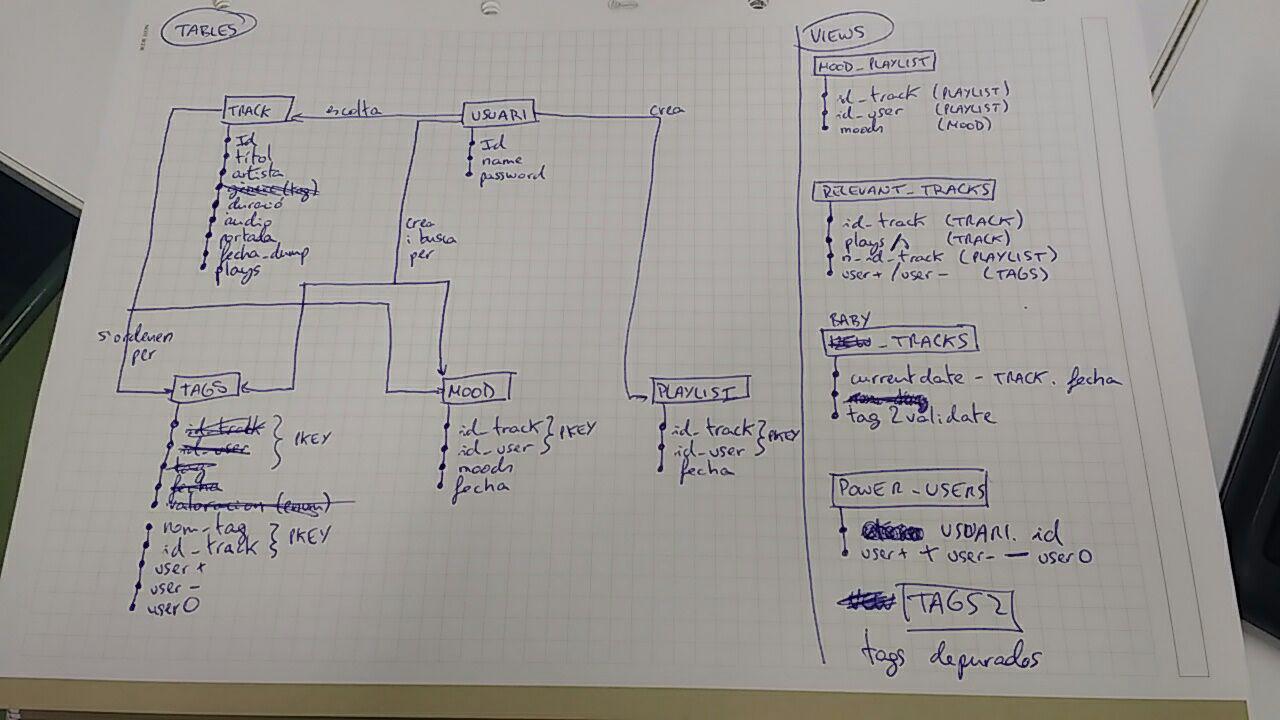 TABLES
TRACK
escolta
USUARI
crea
Id
titol
artista
genere (tag)
duració
audio
portada
fecha_dump
plays
Id
name
password
crea
i busca
per
s'ordenen
per
TAGS
id_track
id_user
tag
fecha
valoracion (enum)
PKEY
nom_tag
id_track
PKEY
user +
user -
user O
MOOD
id_track
id_user
PKEY
moods
fecha
PLAYLIST
id_track
id_user
PKEY
fecha
VIEWS
MOOD_PLAYLIST
id_track (PLAYLIST)
id_user (PLAYLIST)
moods (MOOD)
RELEVANT_TRACKS
id_track (TRACK)
plays (TRACK)
n_id_track (PLAYLIST)
user+ / user- (TAGS)
BABY
NEW _ TRACKS
current date - TRACK. fecha
tag 2 validate
POWER_USERS
USUARI. id
user+ + user- - user O
TAGS 2
tags depurados